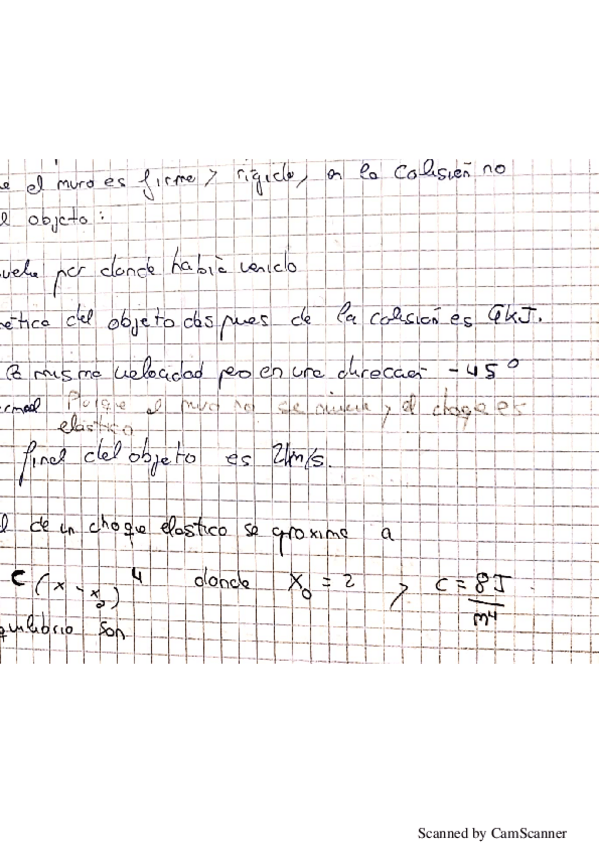 e el muro es firme y rigido, en la colisión no
l objeto:
uelve por donde había venido
nética del objeto despues de la colisión es 4kJ.
la misma velocidad pero en una direccion -45°
rmal Porque el muro no se mueve y el choque es
elástico
final del objeto es 2m/s.
l de un choque elastico se aproxima a
C (x - x₀)⁴ donde X₀ = 2 y C = 8J/m⁴
quilibrio son
Scanned by CamScanner